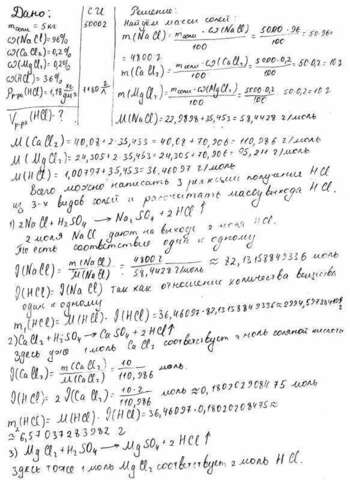 Дано:
m соли = 5 кг
ω(NaCl) = 96%
ω(CaCl₂) = 0,2%
ω(MgCl₂) = 0,2%
ω(HCl) = 36%
ρр-ра(HCl) = 1,18 кг/дм³
Vр-ра(HCl) - ?
СИ
5000 г
1180 г/л
Решение:
Найдём массы солей:
m(NaCl) = mсоли · ω(NaCl)/100 = 5000·96/100 = 50·96=
= 4800 г
m(CaCl₂) = mсоли · ω(CaCl₂)/100 = 5000·0,2/100 = 50·0,2 = 10 г
m(MgCl₂) = mсоли · ω(MgCl₂)/100 = 5000·0,2/100 = 50·0,2 = 10 г
M(NaCl) = 22,9898 + 35,453 = 58,4428 г/моль
M(CaCl₂) = 40,08 + 2·35,453 = 40,08 + 70,906 = 110,986 г/моль
M(MgCl₂) = 24,305 + 2·35,453 = 24,305 + 70,906 = 95,211 г/моль
M(HCl) = 1,00797 + 35,453 = 36,46097 г/моль
Всего можно написать 3 реакции получения HCl
из 3-х видов солей и рассчитать массу выхода HCl.
1) 2NaCl + H₂SO₄ → Na₂SO₄ + 2HCl↑
2 моля NaCl дают на выходе 2 моля HCl.
То есть соответствие один к одному
ν(NaCl) = m(NaCl)/M(NaCl) = 4800 г/58,4428 г/моль ≈ 82,1315849336 моль
ν(HCl) = ν(NaCl) так как отношение количества вещества
один к одному
m₁(HCl) = M(HCl) · ν(HCl) = 36,46097 · 82,1315849336 ≈ 2994,597
2) CaCl₂ + H₂SO₄ → CaSO₄ + 2HCl↑
Здесь уже 1 моль CaCl₂ соответствует 2 моль соляной кислоты
ν(CaCl₂) = m(CaCl₂)/M(CaCl₂) = 10/110,986 моль.
ν(HCl) = 2ν(CaCl₂) = 10·2/110,986 моль ≈ 0,18020290847 5 моль
m₂(HCl) = M(HCl) · ν(HCl) = 36,46097 · 0,180202908475 ≈
≈ 6,57037283982 г
3) MgCl₂ + H₂SO₄ → MgSO₄ + 2HCl↑
Здесь тоже 1 моль MgCl₂ соответствует 2 моль HCl.